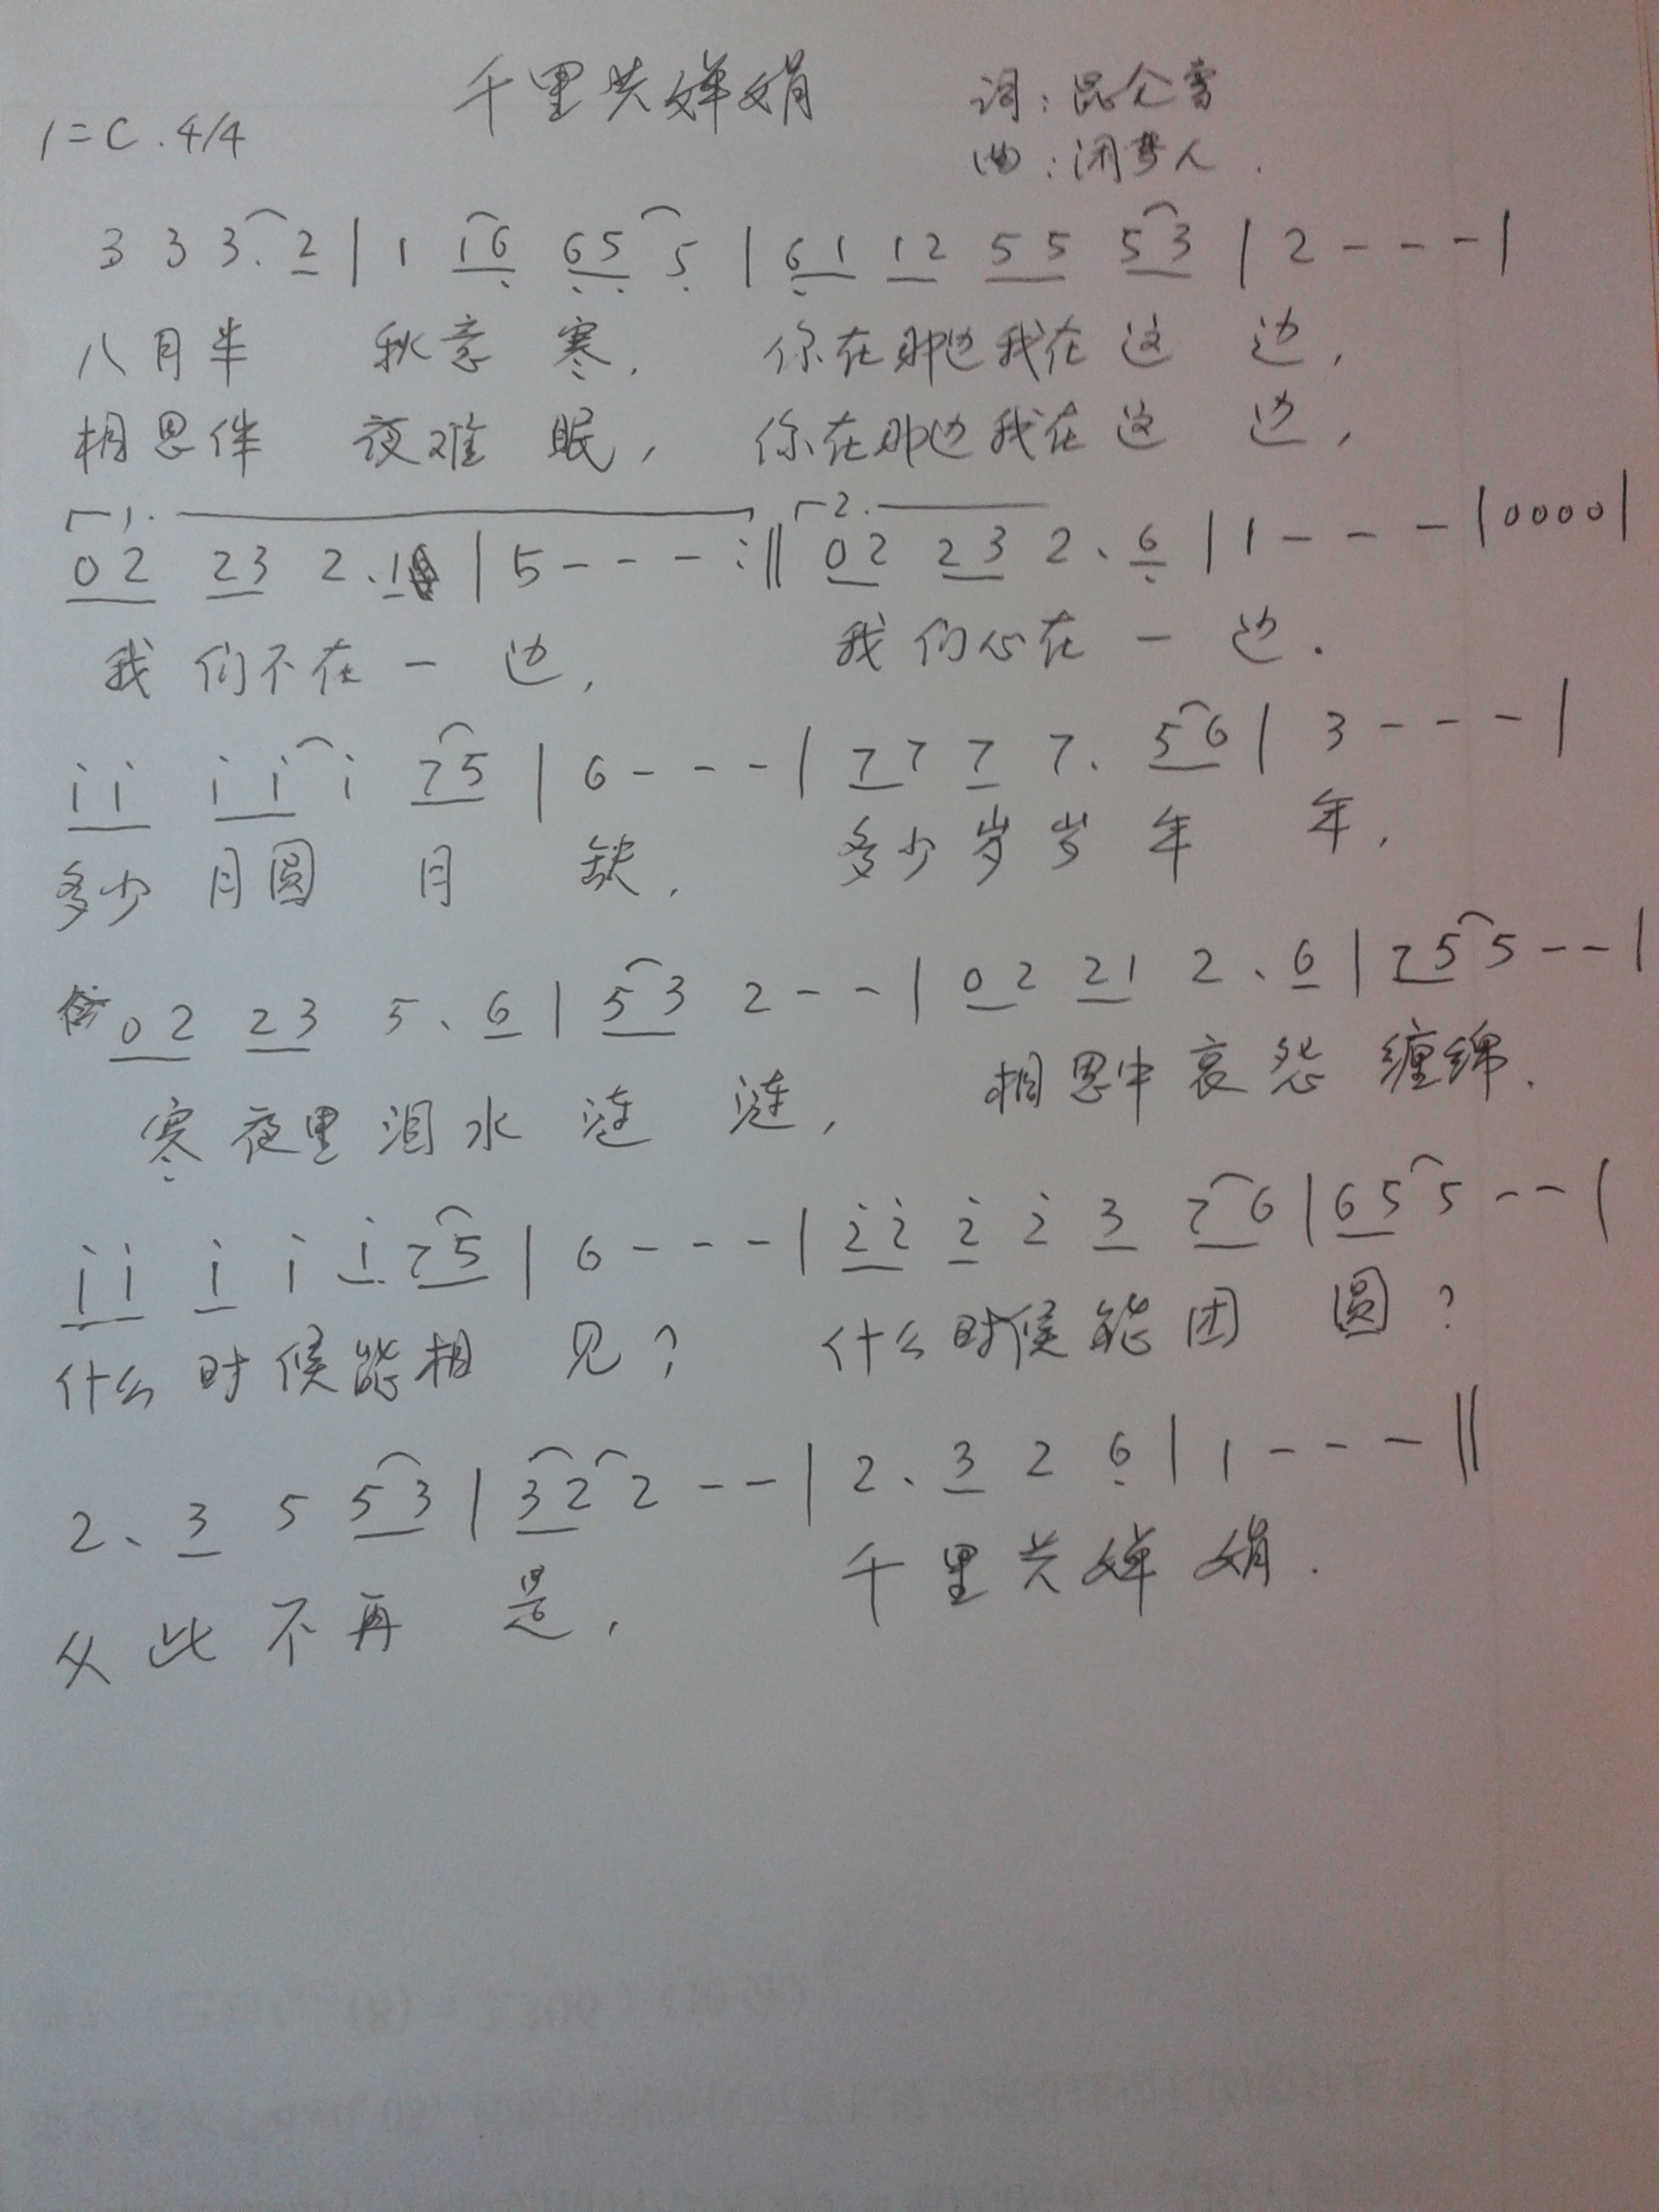 千里共婵娟
词：昆仑雪
1=C.4/4
曲：闲梦人.
3 3 3. 2 | 1 16 65 5 | 61 12 55 53 | 2 - - - |
八月半 秋意寒, 你在那边我在这边,
相思伴 夜难眠, 你在那边我在这边,
1. 2.
02 23 2. 1 | 5 - - - :|| 02 23 2. 6 | 1 - - - | 0000 |
我们不在一边, 我们心在一边.
i i i i i 75 | 6 - - - | 7 7 7 7. 56 | 3 - - - |
多少月圆月缺, 多少岁岁年年,
02 23 5. 6 | 53 2 - - | 02 21 2. 6 | 75 5 - - |
寒夜里泪水涟涟, 相思中哀怨缠绵.
i i i i i. 75 | 6 - - - | 2̇ 2̇ 2̇ 2̇ 3 76 | 65 5 - - |
什么时候能相见? 什么时候能团圆?
2. 3 5 53 | 32 2 - - | 2. 3 2 6 | 1 - - - ||
从此不再是, 千里共婵娟.